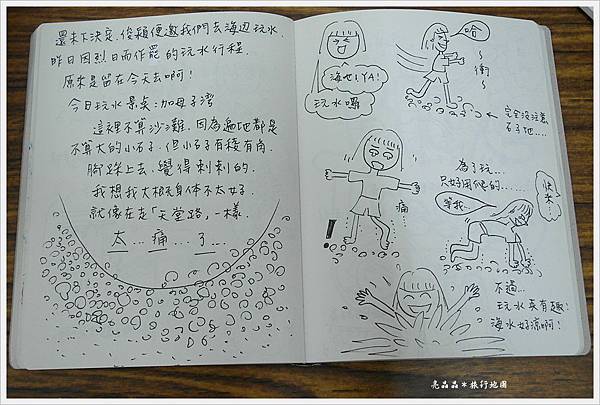 還未下決定,俊穎便邀我們去海边玩水.
昨日因烈日而作罷的玩水行程.
原來是留在今天去啊!
今日玩水景奌:加母子灣
這裡不算沙灘.因為遍地都是
不算大的小石子.但小石子有稜有角.
腳踩上去.覺得刺刺的.
我想我大概身体不太好.
就像在走「天堂路」一樣.
太...痛...了...
海也!YA!
玩水囉
哈
~
衝
~
完全沒注意
石子地....
痛
!
為了玩...
只好用爬的......
等我...
快來...
不過...
玩水真有趣!
海水好涼啊!
亮晶晶*旅行地圖